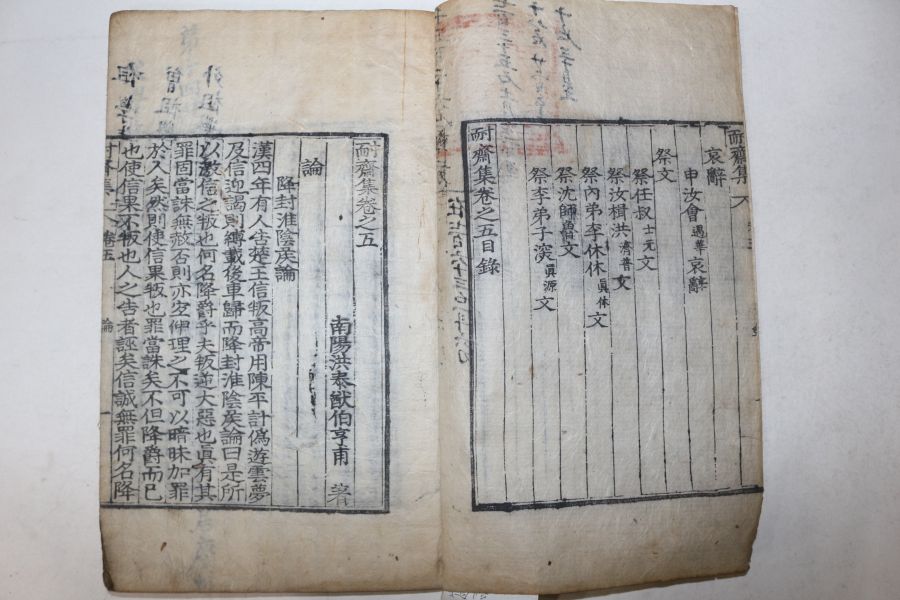 耐齋集
哀辭
申汝會遇華哀辭
祭文
祭任叔士元文
祭汝楫洪濟普文
祭內弟李休休眞休文
祭沈師魯文
祭李弟子深眞源文
耐齋集卷之五目錄
耐齋集卷之五
南陽洪泰猷伯亨甫 著
論
降封淮陰侯論
漢四年有人告楚王信叛高帝用陳平計僞遊雲夢
及信迎謁則縛載後車歸而降封淮陰侯論曰是所
以激信之叛也何名降爵乎夫叛逆大惡也眞有其
罪固當誅無赦否則亦宜伸理之不可以暗昧加罪
於人矣然則使信果叛也罪當誅矣不但降爵而已
也使信果不叛也人之告者誣矣信誠無罪何名降
耐齋集 卷五 論 一
外祖
曾祖
祖